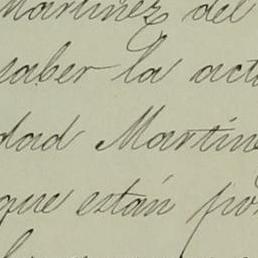 Martinez del
saber la actu
dad Martine
que están por